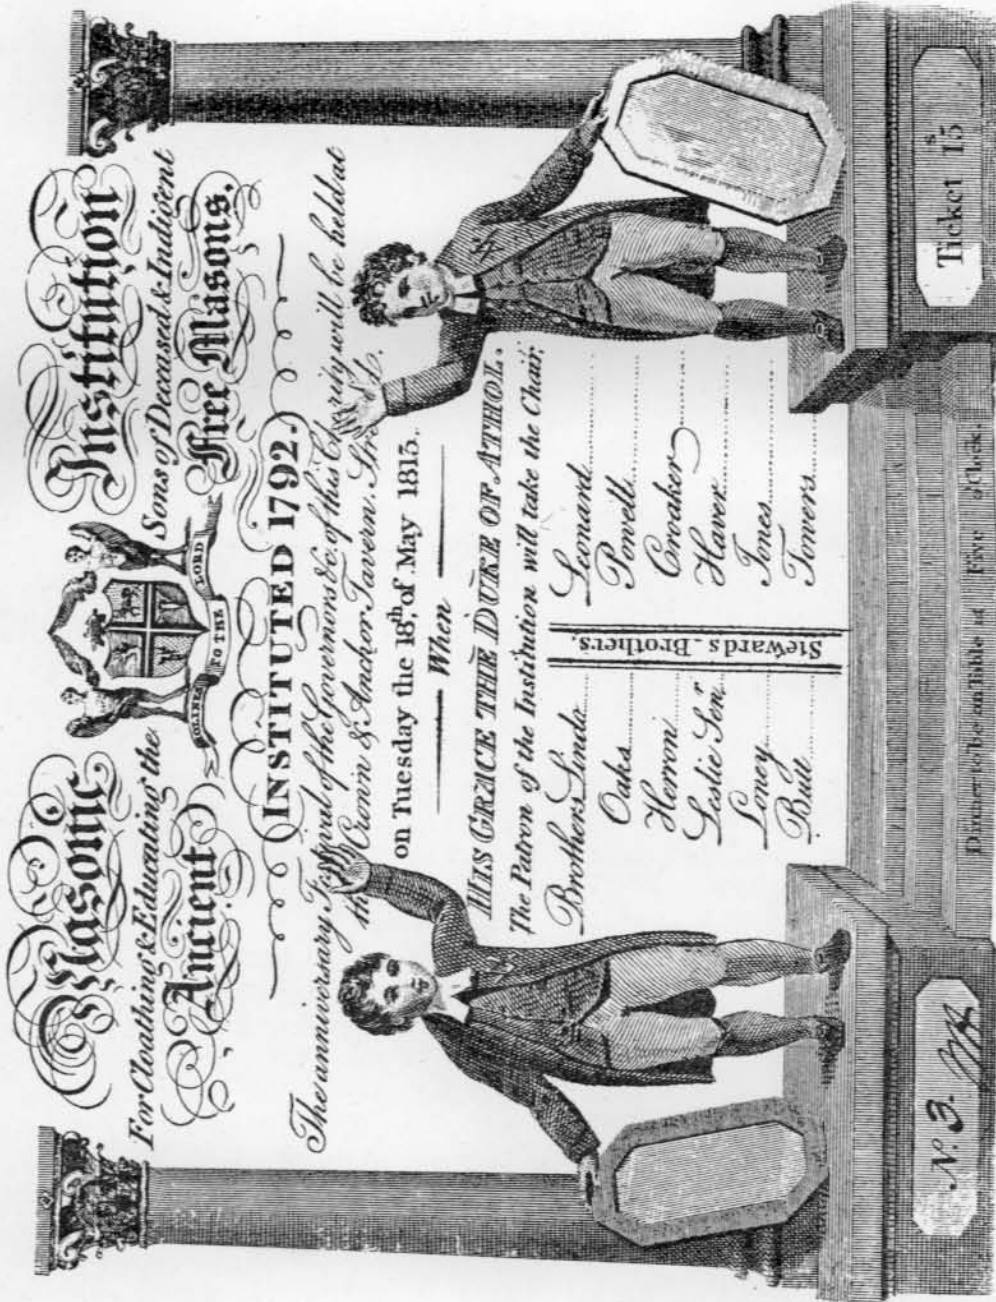 Masonic Institution
For Cloathing & Educating the Sons of Deceased & Indigent
Ancient Free Masons.
HOLINESS TO THE LORD
INSTITUTED 1792.
The anniversary Festival of the Governors &c. of this Charity will be held at
the Crown & Anchor Tavern, Strd.
on Tuesday the 18th, of May 1813.
When
HIS GRACE THE DUKE OF ATHOL.
The Patron of the Institution will take the Chair.
Stewards. Brothers.
Brothers Lindo Leonard
Oaks Powell
Herron Croaker
Leslie Senr Haver
Loney Jones
Butt Towers
No. 3.
Ticket 15s
Dinner to be on table at Five o'Clock.